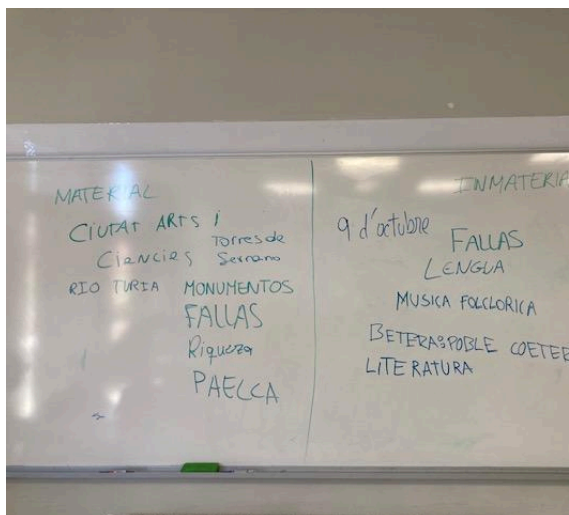 MATERIAL
CIUTAT ARTS I
Ciencies
Torres de
Serrano
RIO TURIA
MONUMENTOS
FALLAS
Riqueza
PAELLA
INMATERIA
9 d'octubre
FALLAS
LENGUA
MUSICA FOLCLORICA
BETERAS POBLE COETER
LITERATURA